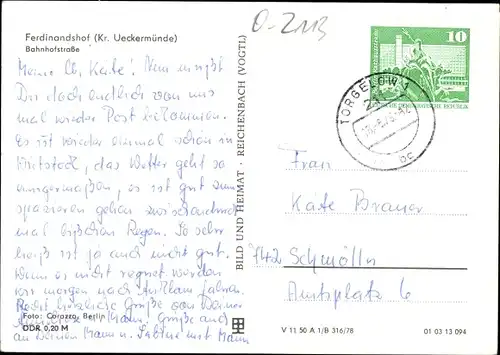 O-2113
Ferdinandshof (Kr. Ueckermünde)
Bahnhofstraße
Meine lb. Käte! Nun mußt
Du doch endlich von uns
mal wieder Post bekommen.
Es ist wieder einmal schön in
das Wetter geht so
einigermaßen, es ist gut zum
spazieren gehen zwischendurch
mal bißchen Regen. So sehr
heiß ist ja auch nicht gut.
Wenn es nicht regnet werden
wir morgen nach fahren.
Recht herzliche Grüße von Deiner
Grüße auch
an Deinen Mann u. Sabine mit Mann
Foto: Corazza, Berlin
DDR 0,20 M
BILD UND HEIMAT · REICHENBACH (VOGTL)
10
DEUTSCHE DEMOKRATISCHE REPUBLIK
TORGELOW 1
bc
Frau
Käte Brauer
742 Schmölln
Amtsplatz 6
V 11 50 A 1/B 316/78
01 03 13 094